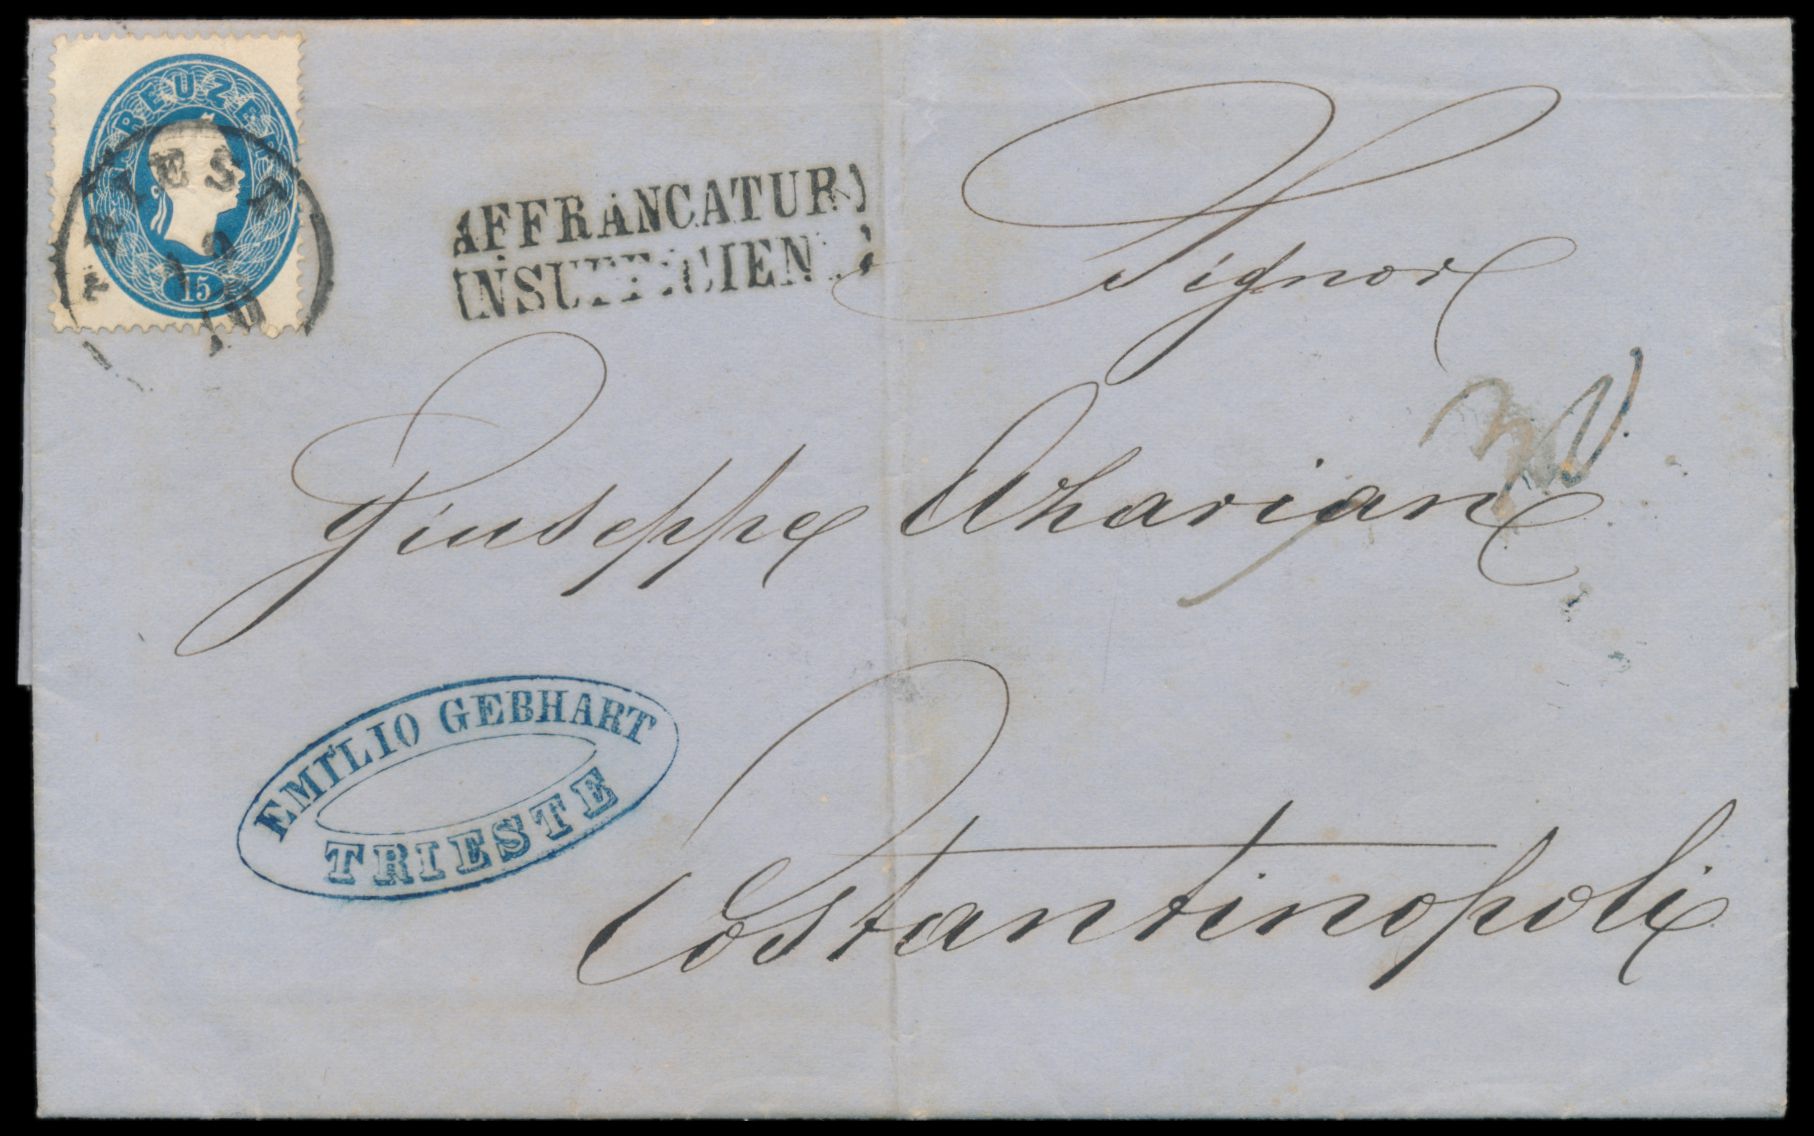 KREUZER
15
TRIEST
AFFRANCATURA
INSUFFICIENTE
Signor
Giuseppe Aharian
Costantinopoli
EMILIO GEBHART
TRIESTE